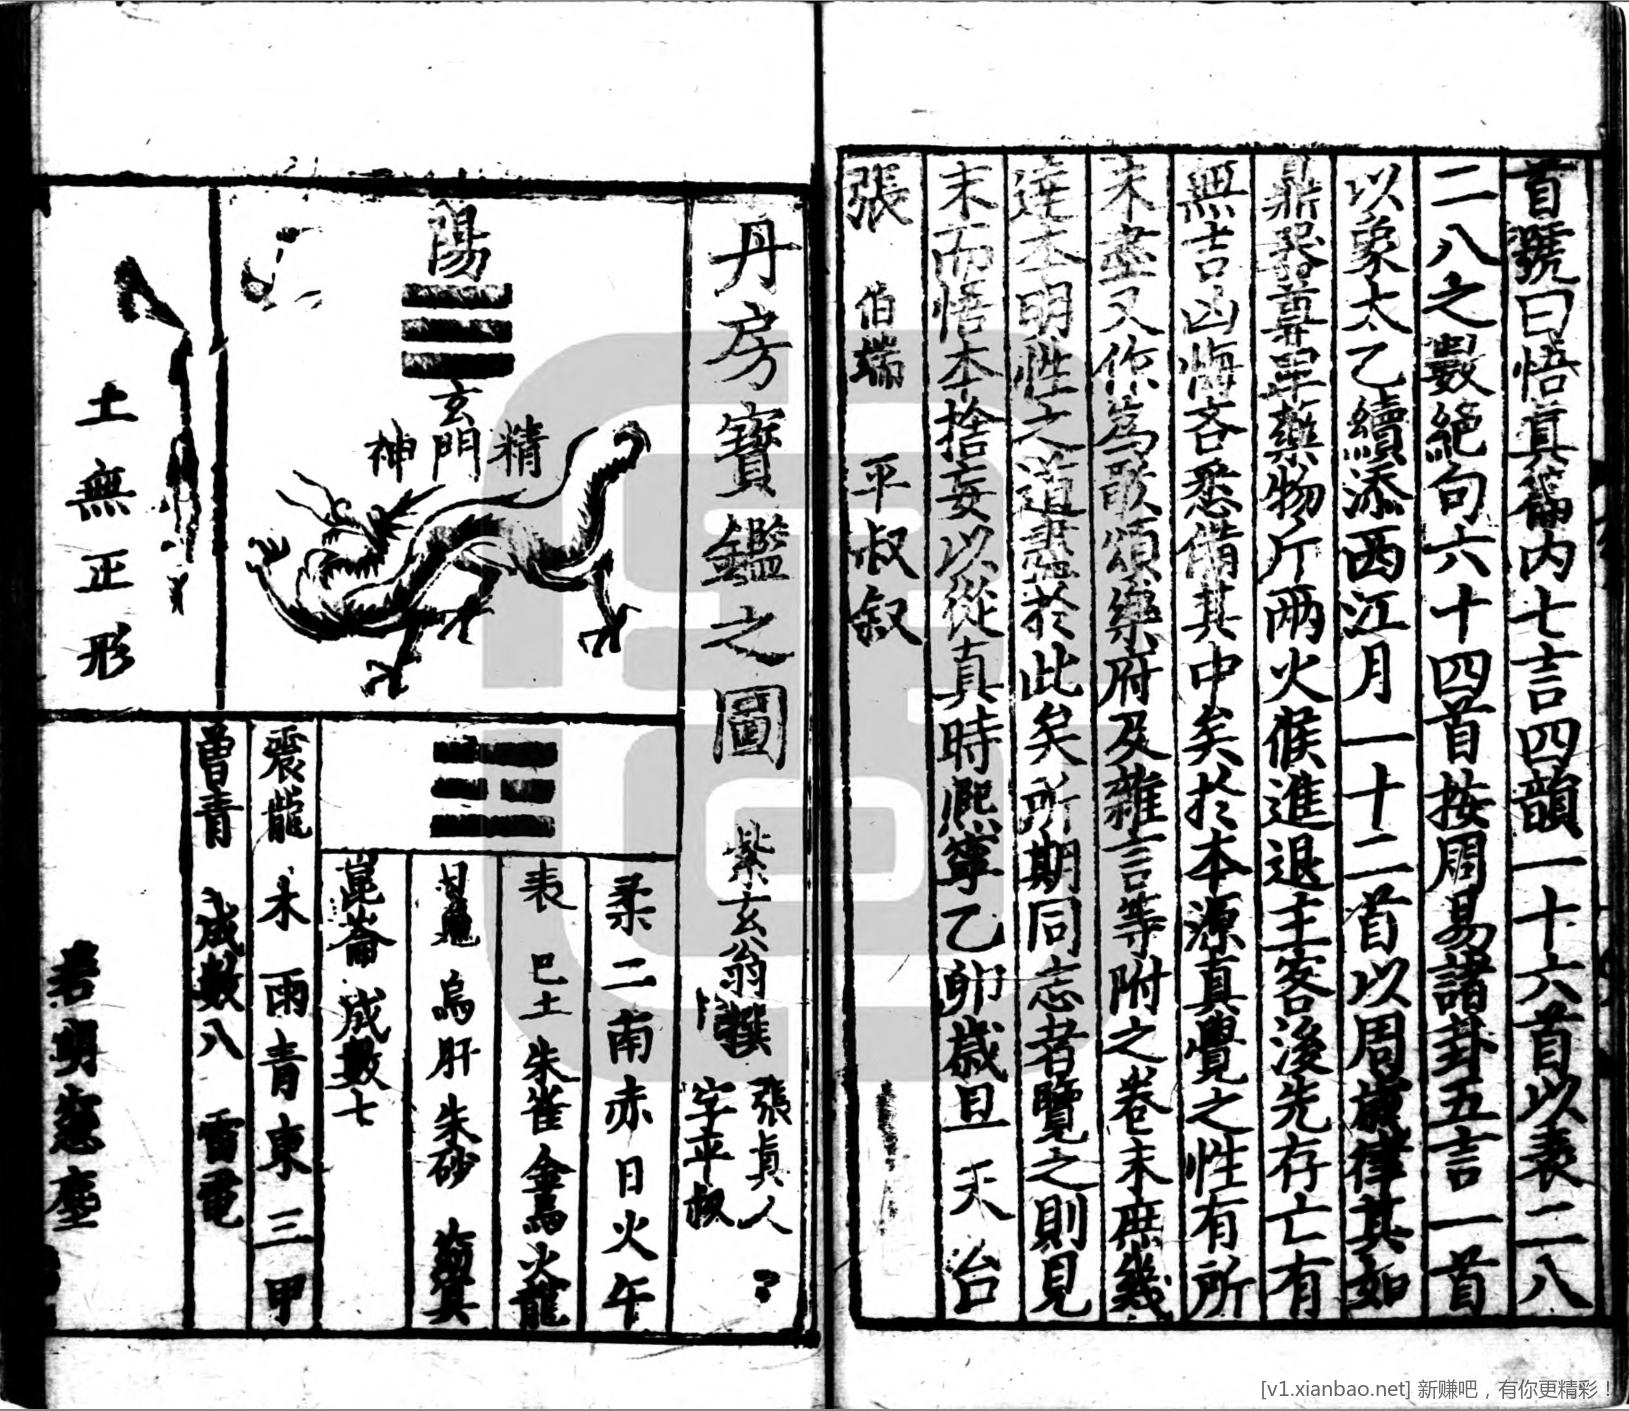 首號曰悟真篇内七言四韻一十六首以表二八
二八之數絕句六十四首按周易諸卦五言一首
以象太乙續添西江月一十二首以周歲律其如
鼎器尊卑藥物斤兩火候進退主客後先存亡有
無吉凶悔吝悉備其中矣於本源真覺之性有所
未盡又作為歌頌樂府及雜言等附之卷末庶幾
達本明性之道盡於此矣所期同志者覽之則見
末而悟本捨妄以從真時熙寧乙卯歲旦天台
張 伯端 平叔叙
丹房寶鑑之圖 紫玄翁撰 張真人 字平叔
陽
玄門
精
神
土無正形
柔二南赤日火午
表 巳土 朱雀 金烏 火龍
烏肝 朱砂
崑崙 成數七
震龍 木 雨青東三甲
曾青 成數八 雷電
[v1.xianbao.net] 新赚吧，有你更精彩！